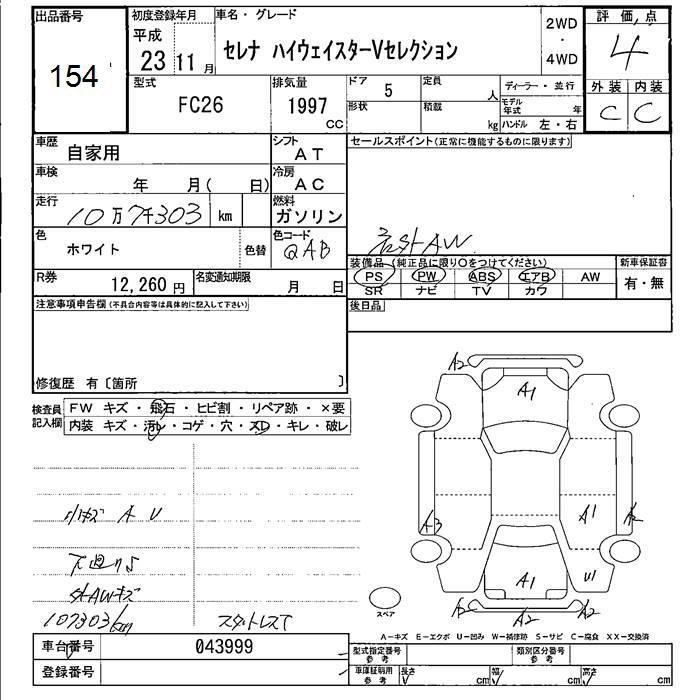 出品番号
154
初度登録年月
平成
23 11月
車名・グレード
セレナ ハイウェイスターVセレクション
2WD
・
4WD
評価点
4
外装 内装
C C
型式
FC26
排気量
1997
CC
ドア 5
形状
定員 人
積載 kg
ディーラー・並行
モデル年式 年
ハンドル 左・右
車歴
自家用
シフト
AT
車検
年 月( 日)
冷房
AC
走行
10万7千303 km
燃料
ガソリン
色
ホワイト
色替
色コード
QAB
R券
12,260円
名変通知期限
月 日
セールスポイント(正常に機能するものに限ります)
社外AW
装備品(純正品に限り○をつけてください)
PS PW ABS エアB AW
SR ナビ TV カワ
新車保証書
有・無
後日品
注意事項申告欄(不具合内容等は具体的に記入して下さい)
修復歴 有〔箇所 〕
検査員記入欄
FW キズ・飛石・ヒビ割・リペア跡・×要
内装 キズ・汚レ・コゲ・穴・スレ・キレ・破レ
小キズ A U
下廻りS
外AWキズ
107303km
スタットレスT
A2
A1
A3
A1
A2
A1
U1
A2
A2
A2
スペア
A−キズ E−エクボ U−凹み W−補修跡 S−サビ C−腐食 XX−交換済
車台番号
043999
登録番号
型式指定番号
参考
類別区分番号
参考
車庫証明用
参考
長さ cm
幅 cm
高さ cm